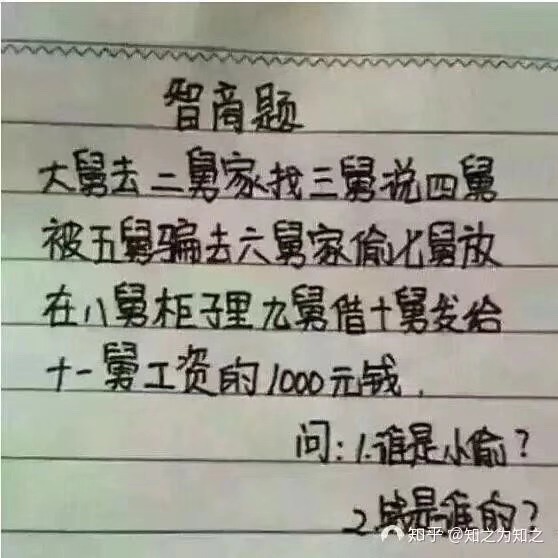 智商题
大舅去二舅家找三舅说四舅
被五舅骗去六舅家偷七舅放
在八舅柜子里九舅借十舅发给
十一舅工资的1000元钱.
问:1.谁是小偷?
2.钱是谁的?
知乎 @知之为知之